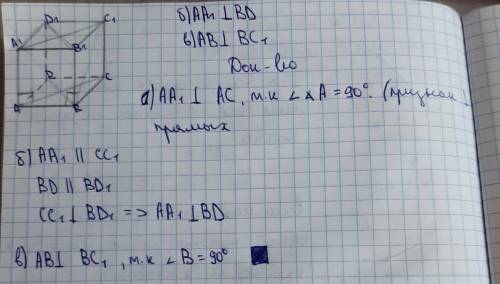 D1 C1
A1 B1
D C
A B
б) AA₁ ⊥ BD
в) AB ⊥ BC₁
Док-во
а) AA₁ ⊥ AC, т.к ∠ A = 90°. (признак ⊥
прямых
б) AA₁ || CC₁
BD || BD₁
CC₁ ⊥ BD₁ => AA₁ ⊥ BD.
в) AB ⊥ BC₁, т.к ∠ B = 90°